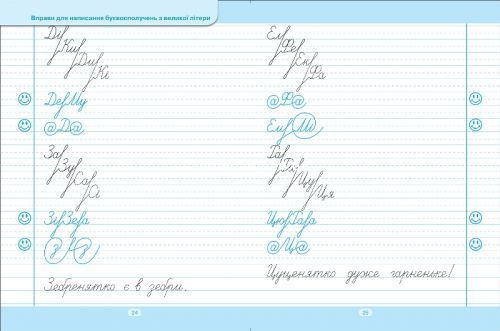 Вправи для написання буквосполучень з великої літери
Ді
Ки
Ди
Кі
Де Му
@Д@
За
Зу
Са
Сі
Зі Зе а
Зебренятко є в зебри.
24
Ем
Фе
Ек
Фа
@Ф@
Ем Мі
Га
Гі
Цу
Ця
Цю Га а
@Ц@
Цуценятко дуже гарненьке!
25